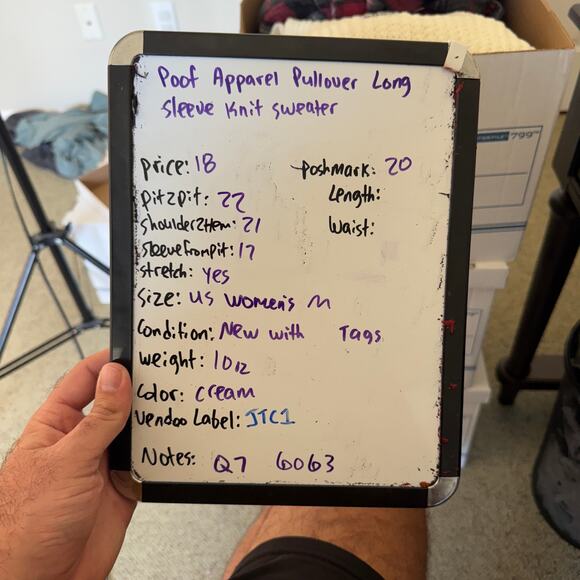 Poof Apparel Pullover Long
Sleeve Knit Sweater
price: 18
poshmark: 20
pit2pit: 22
Length:
shoulder2Hem: 21
Waist:
sleeveFrompit: 17
stretch: yes
Size: US women's M
Condition: New with Tags
weight: 10 oz
Color: Cream
Vendoo Label: JTC1
Notes: Q7 6063
799